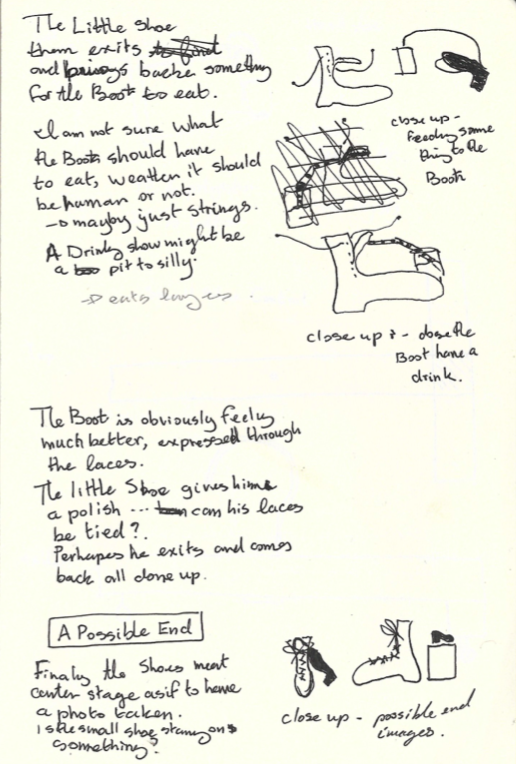 The Little shoe
them exits to find
and brings backe something
for the Boot to eat.
I am not sure what
the Boots should have
to eat, weatten it should
be human or not.
→ mayby just strings.
A Drinky show might be
a too pit to silly.
→ eats
close up -
Feeding some
thing to the
Booth
close up ? - dose the
Boot have a
drink.
The Boot is obviously feely
much better, expressed through
the laces.
The little Shoe gives hime
a polish ... can his laces
be tied?
Perhapes he exits and coms
back all done up.
A Possible End
Finaly the Shoes meat
center stage as if to have
a photo taken.
Is the small shoe standing on
something?
close up - possible end
images.